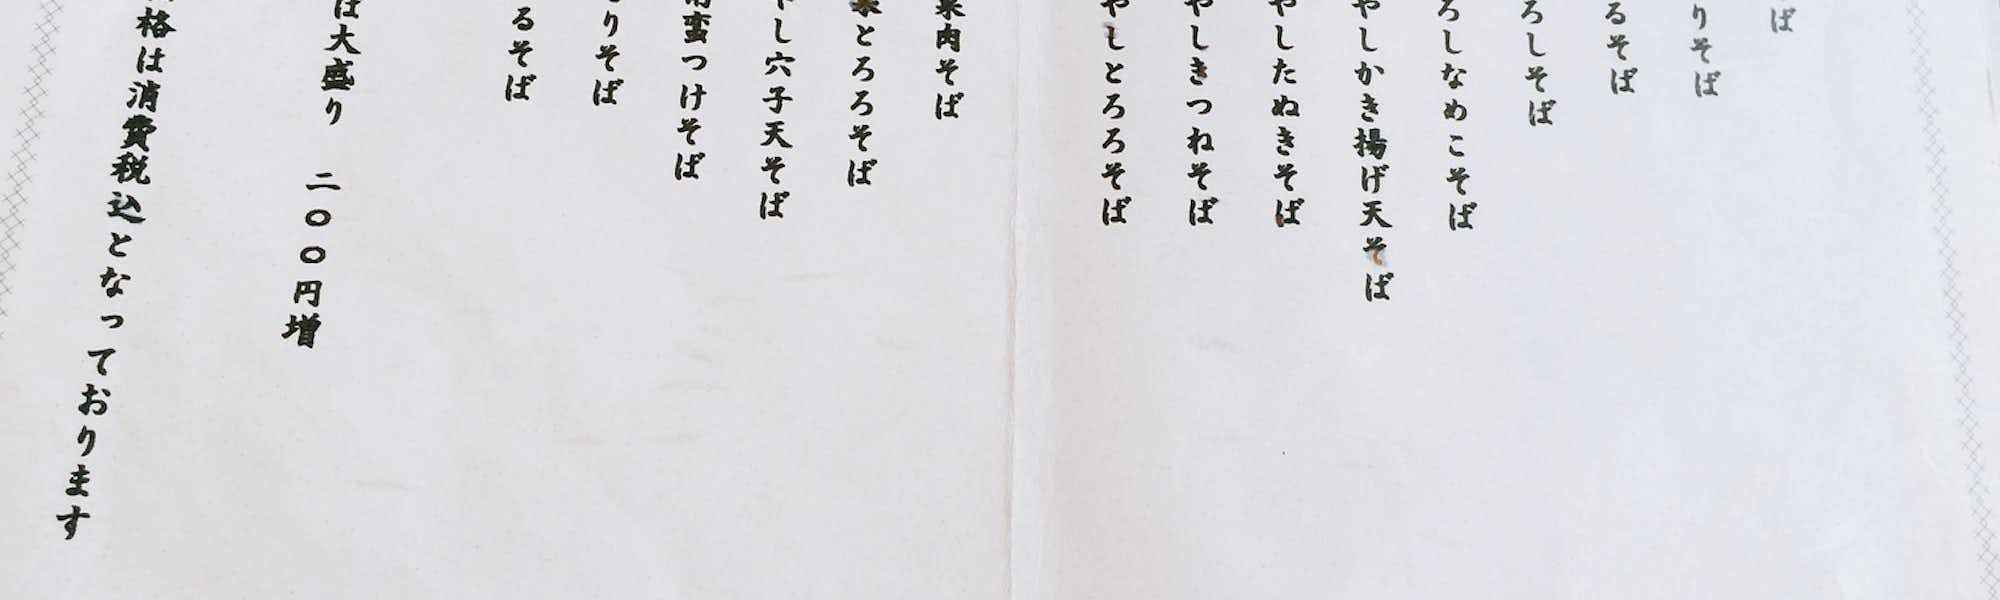 ば
りそば
るそば
ろしそば
ろしなめこそば
やしかき揚げ天そば
やしたぬきそば
やしきつねそば
やしとろろそば
菜肉そば
菜とろろそば
やし穴子天そば
南蛮つけそば
りそば
るそば
は大盛り 二〇〇円増
価格は消費税込となっております